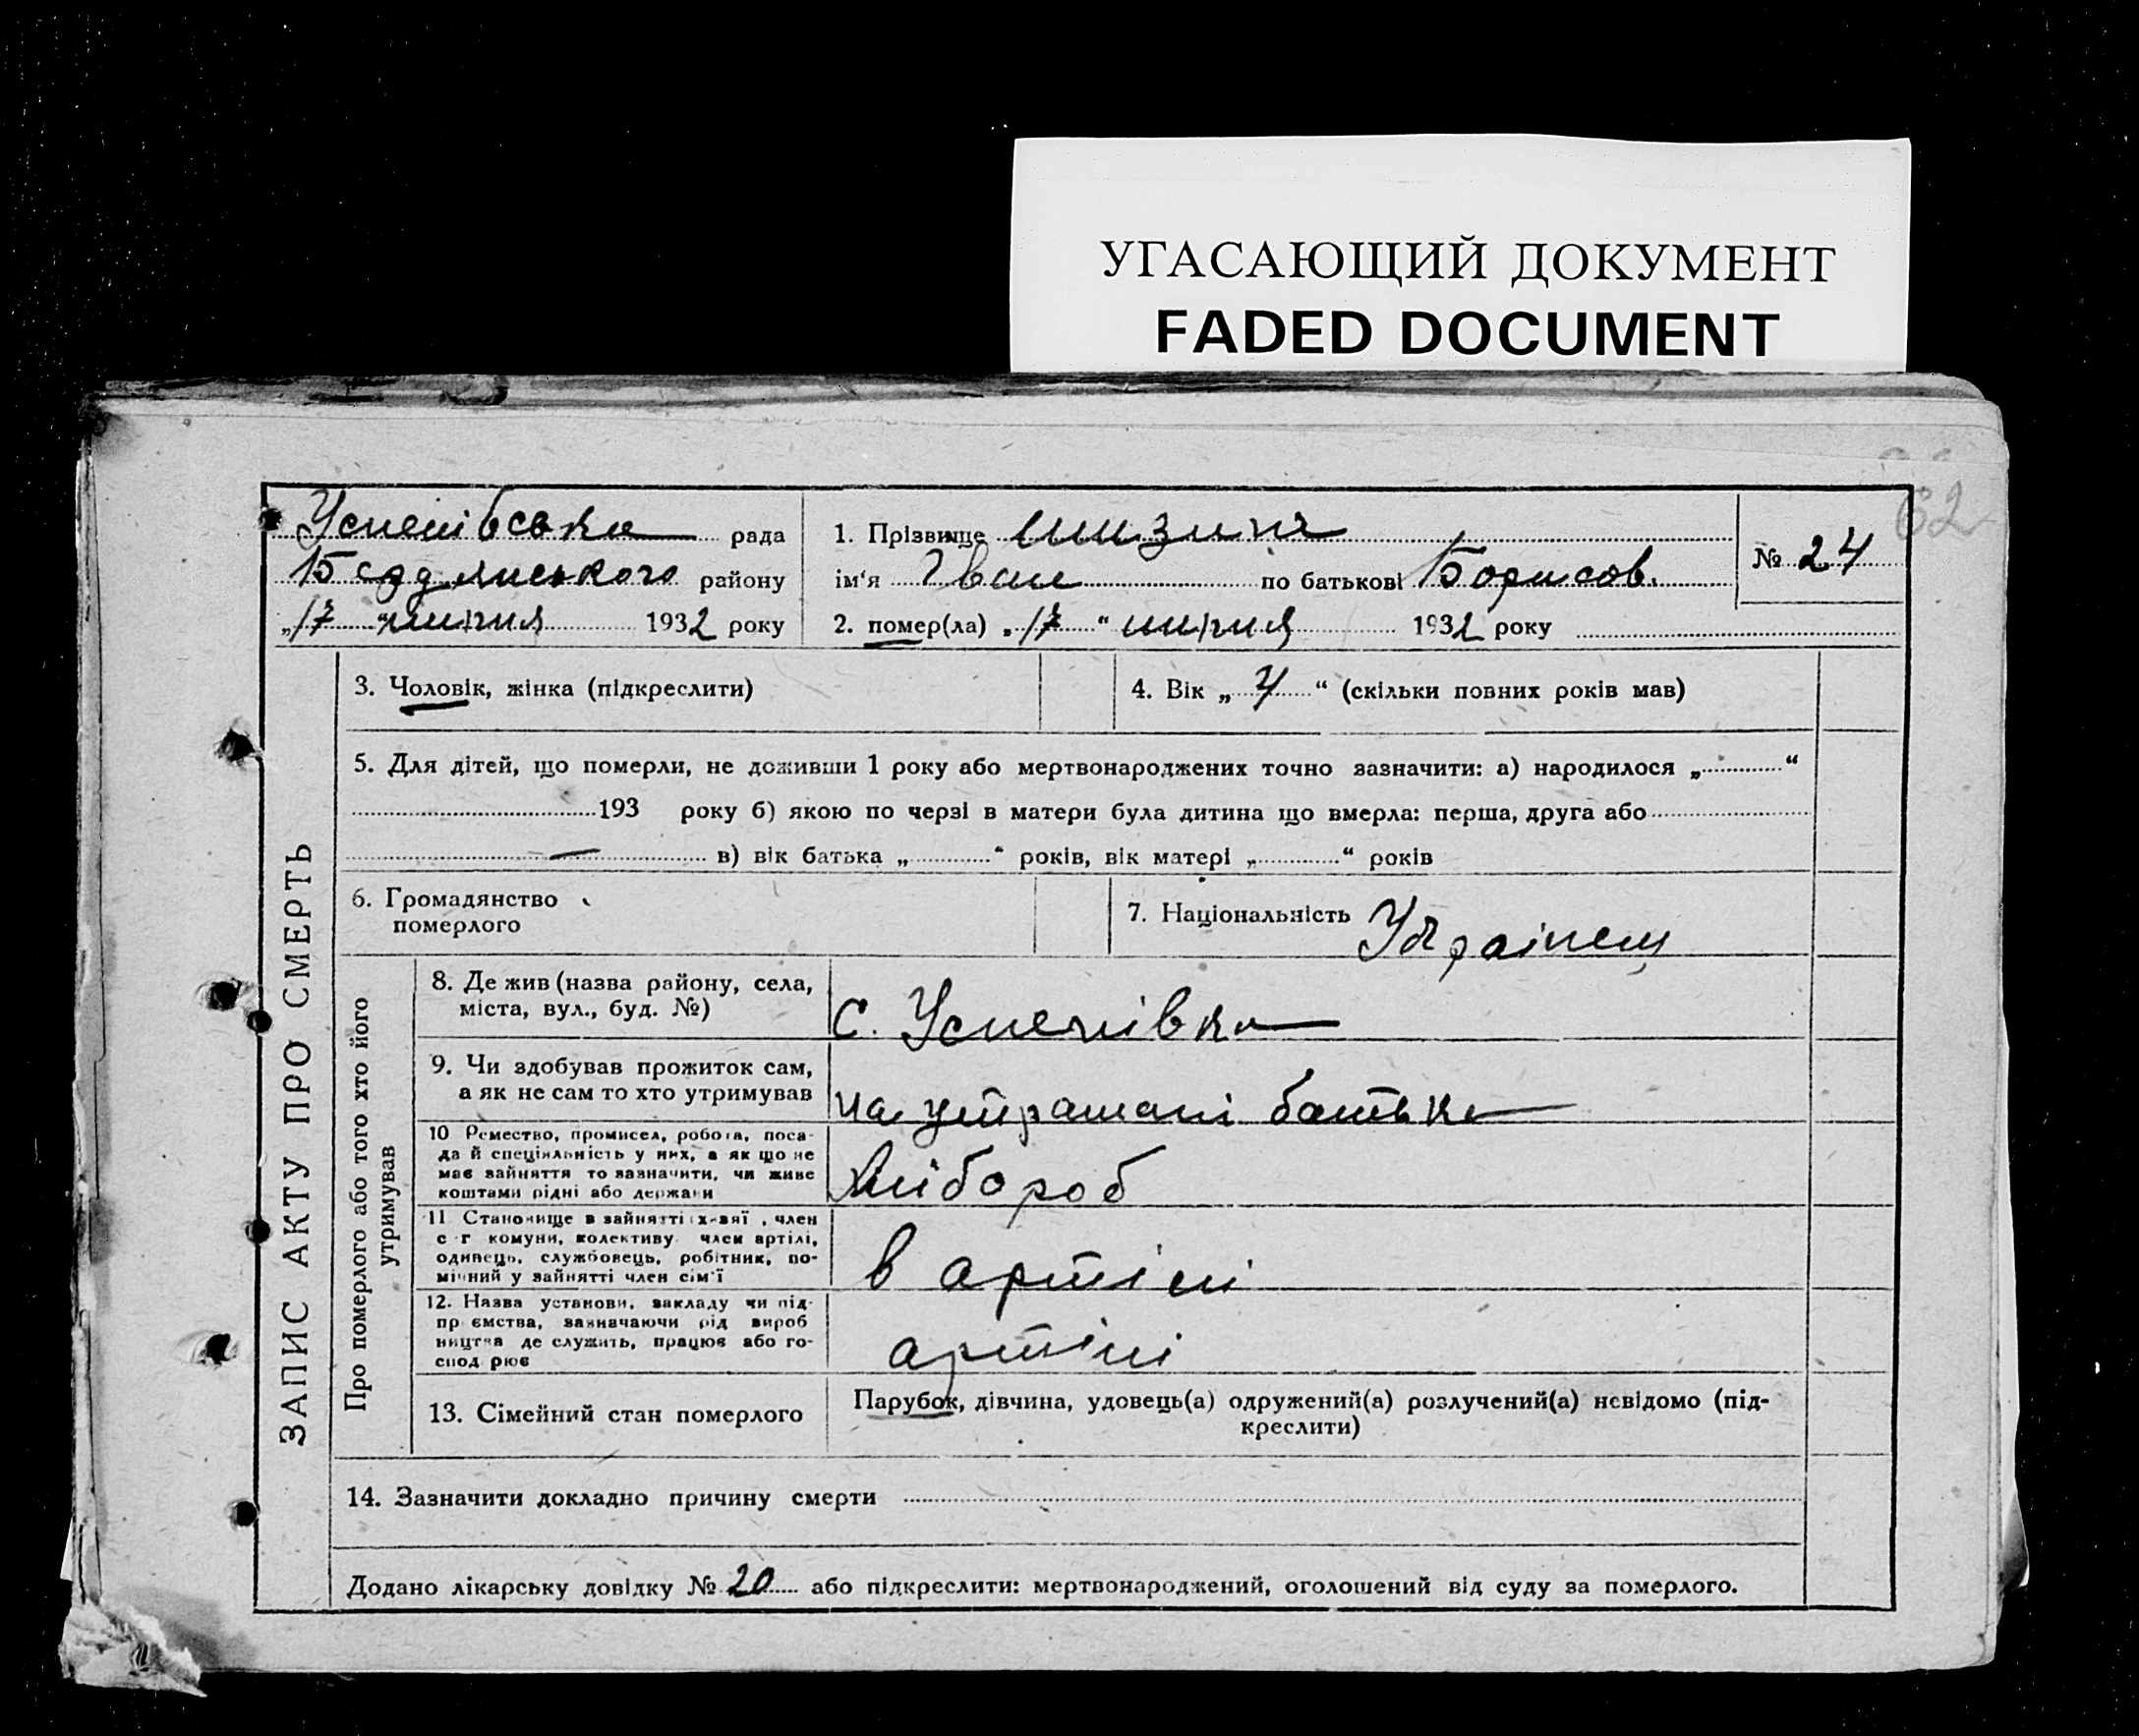 УГАСАЮЩИЙ ДОКУМЕНТ
FADED DOCUMENT
62
Успенівська рада
району
„17 “ липня 1932 року
1. Прізвище
ім'я Іван по батькові Борисов.
2. помер(ла) „17“ липня 1932 року
№ 24
ЗАПИС АКТУ ПРО СМЕРТЬ
3. Чоловік, жінка (підкреслити)
4. Вік „ 4 “ (скільки повних років мав)
5. Для дітей, що померли, не доживши 1 року або мертвонароджених точно зазначити: а) народилося „ “
193 року б) якою по черзі в матери була дитина що вмерла: перша, друга або
— в) вік батька „ “ років, вік матері „ “ років
6. Громадянство
померлого
7. Національність Українец
Про померлого або того хто його
утримував
8. Де жив (назва району, села,
міста, вул., буд. №)
с. Успенівка
9. Чи здобував прожиток сам,
а як не сам то хто утримував
на утрамані батька
10 Ремество, промисел, робота, поса-
да й спеціяльність у них, а як що не
має зайняття то зазначити, чи живе
коштами рідні або держави
Хлібороб
11 Становище в зайнятті х-вяї , член
с-г комуни, колективу член артілі,
одинець, службовець, робітник, по-
мічний у зайнятті член сім'ї
в артілі
12. Назва установи, закладу чи під-
пр ємства, зазначаючи рід вироб
ництва де служить, працює або го-
спод рює
артілі
13. Сімейний стан померлого
Парубок, дівчина, удовець(а) одружений(а) розлучений(а) невідомо (під-
креслити)
14. Зазначити докладно причину смерти
Додано лікарську довідку № 20 або підкреслити: мертвонароджений, оголошений від суду за померлого.